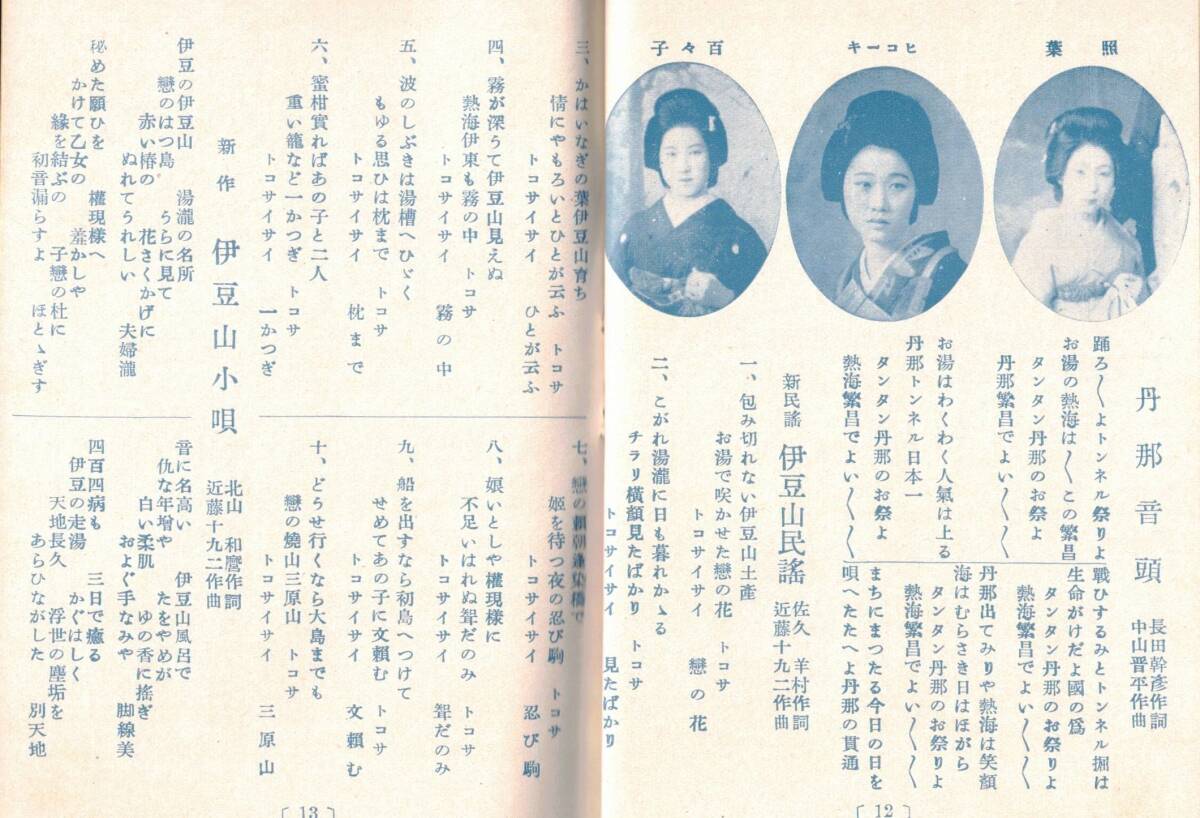 照葉
ヒコーキ
百々子
丹那音頭
長田幹彦作詞
中山晋平作曲
踊ろ〳〵よトンネル祭りよ
お湯の熱海は〳〵この繁昌
タンタン丹那のお祭よ
丹那繁昌でよい〳〵〳〵
お湯はわくわく人氣は上る
丹那トンネル日本一
タンタン丹那のお祭よ
熱海繁昌でよい〳〵〳〵
戰ひするみとトンネル掘は
生命がけだよ國の爲
タンタン丹那のお祭りよ
熱海繁昌でよい〳〵〳〵
丹那出てみりや熱海は笑顏
海はむらさき日はほがら
タンタン丹那のお祭りよ
熱海繁昌でよい〳〵〳〵
まちにまつたる今日の日を
唄へたたへよ丹那の貫通
新民謠 伊豆山民謠
佐久 羊村作詞
近藤十九二作曲
一、包み切れない伊豆山土產
お湯で咲かせた戀の花 トコサ
トコサイサイ 戀の花
二、こがれ湯瀧に日も暮れかゝる
チラリ橫顏見たばかり トコサ
トコサイサイ 見たばかり
〔12〕
三、かはいなぎの葉伊豆山育ち
情にやもろいとひとが云ふ トコサ
トコサイサイ ひとが云ふ
四、霧が深うて伊豆山見えぬ
熱海伊東も霧の中 トコサ
トコサイサイ 霧の中
五、波のしぶきは湯槽へひゞく
もゆる思ひは枕まで トコサ
トコサイサイ 枕まで
六、蜜柑實ればあの子と二人
重い籠など一かつぎ トコサ
トコサイサイ 一かつぎ
七、戀の賴朝逢染橋で
姬を待つ夜の忍び駒 トコサ
トコサイサイ 忍び駒
八、娘いとしや權現樣に
不足いはれぬ聟だのみ トコサ
トコサイサイ 聟だのみ
九、船を出すなら初島へつけて
せめてあの子に文賴む トコサ
トコサイサイ 文賴む
十、どうせ行くなら大島までも
戀の燒山三原山 トコサ
トコサイサイ 三原山
新作 伊豆山小唄
北山 和麿作詞
近藤十九二作曲
伊豆の伊豆山 湯瀧の名所
戀のはつ島 うらに見て
赤い椿の 花さくかげに
ぬれてうれしい 夫婦瀧
秘めた願ひを 權現樣へ
かけて乙女の 羞かしや
緣を結ぶの 子戀の杜に
初音漏らすよ ほとゝぎす
音に名高い 伊豆山風呂で
仇な年增や たをやめが
白い柔肌 ゆの香に搖ぎ
およぐ手なみや 脚線美
四百四病も 三日で癒る
伊豆の走湯 かぐはしく
天地長久 浮世の塵垢を
あらひながした 別天地
〔13〕